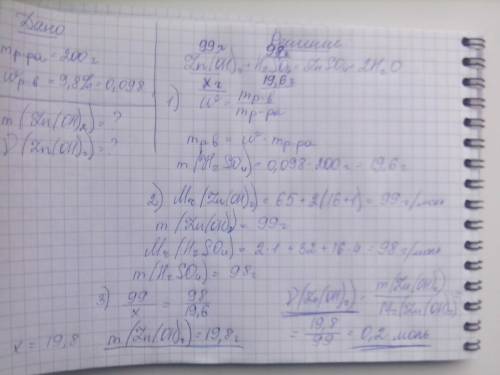 Дано
mр-ра = 200г
Wр-в = 9,8% = 0,098
m(Zn(OH)₂) = ?
ν(Zn(OH)₂) = ?
Решение
99г 98г
Zn(OH)₂ + H₂SO₄ = ZnSO₄ + 2H₂O
xг 19,6г
1) W = mр-в / mр-ра
mрв = W · mр-ра
m(H₂SO₄) = 0,098 · 200г = 19,6г
2) Mr(Zn(OH)₂) = 65 + 2(16+1) = 99г/моль
m(Zn(OH)₂) = 99г
Mr(H₂SO₄) = 2·1 + 32 + 16·4 = 98г/моль
m(H₂SO₄) = 98г
3) 99/x = 98/19,6
x = 19,8 m(Zn(OH)₂) = 19,8г
ν(Zn(OH)₂) = m(Zn(OH)₂) / Mr(Zn(OH)₂) =
= 19,8/99 = 0,2 моль